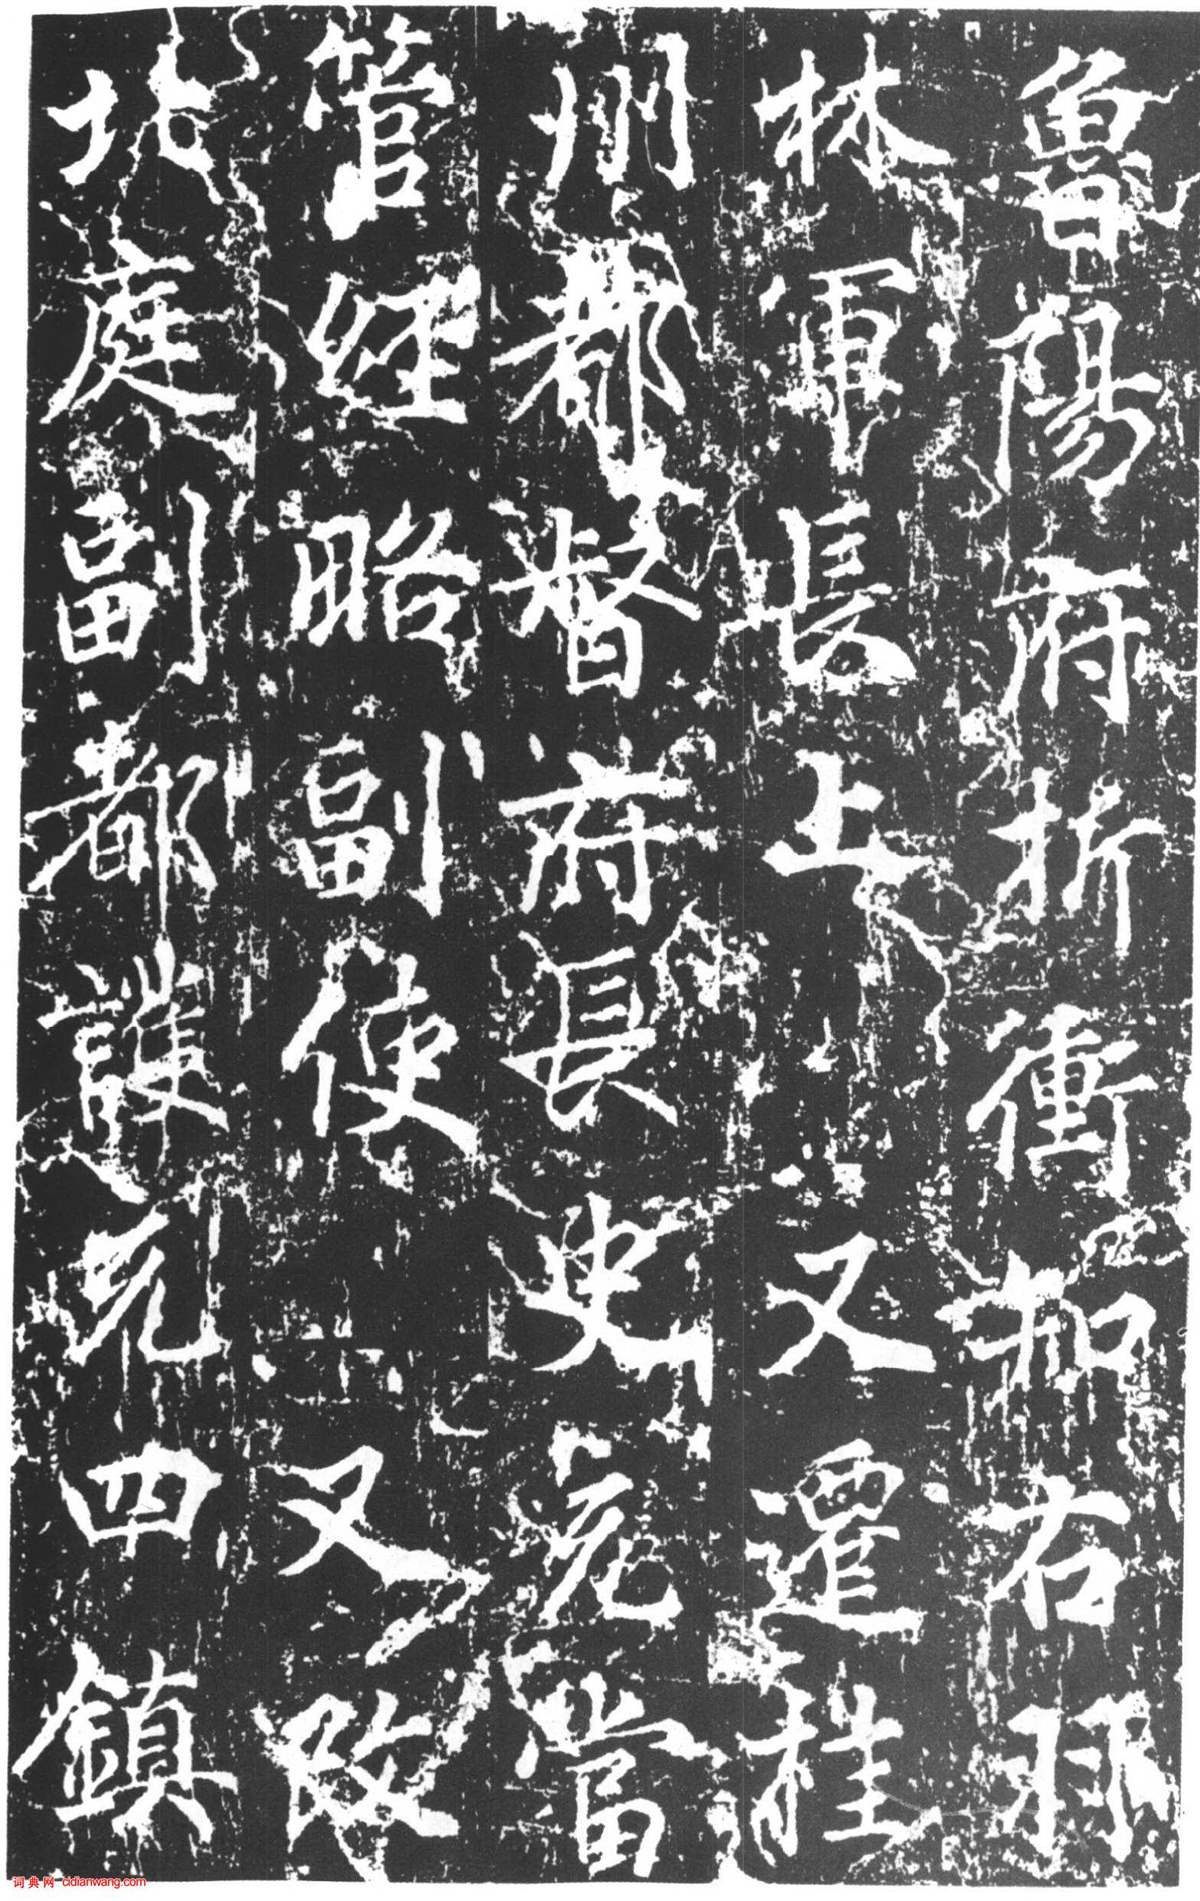 魯陽府折衝加右羽
林軍長上又遷桂
州都督府長史充當
管經略副使又改
北庭副都護充四鎮
词典网 cidianwang.com